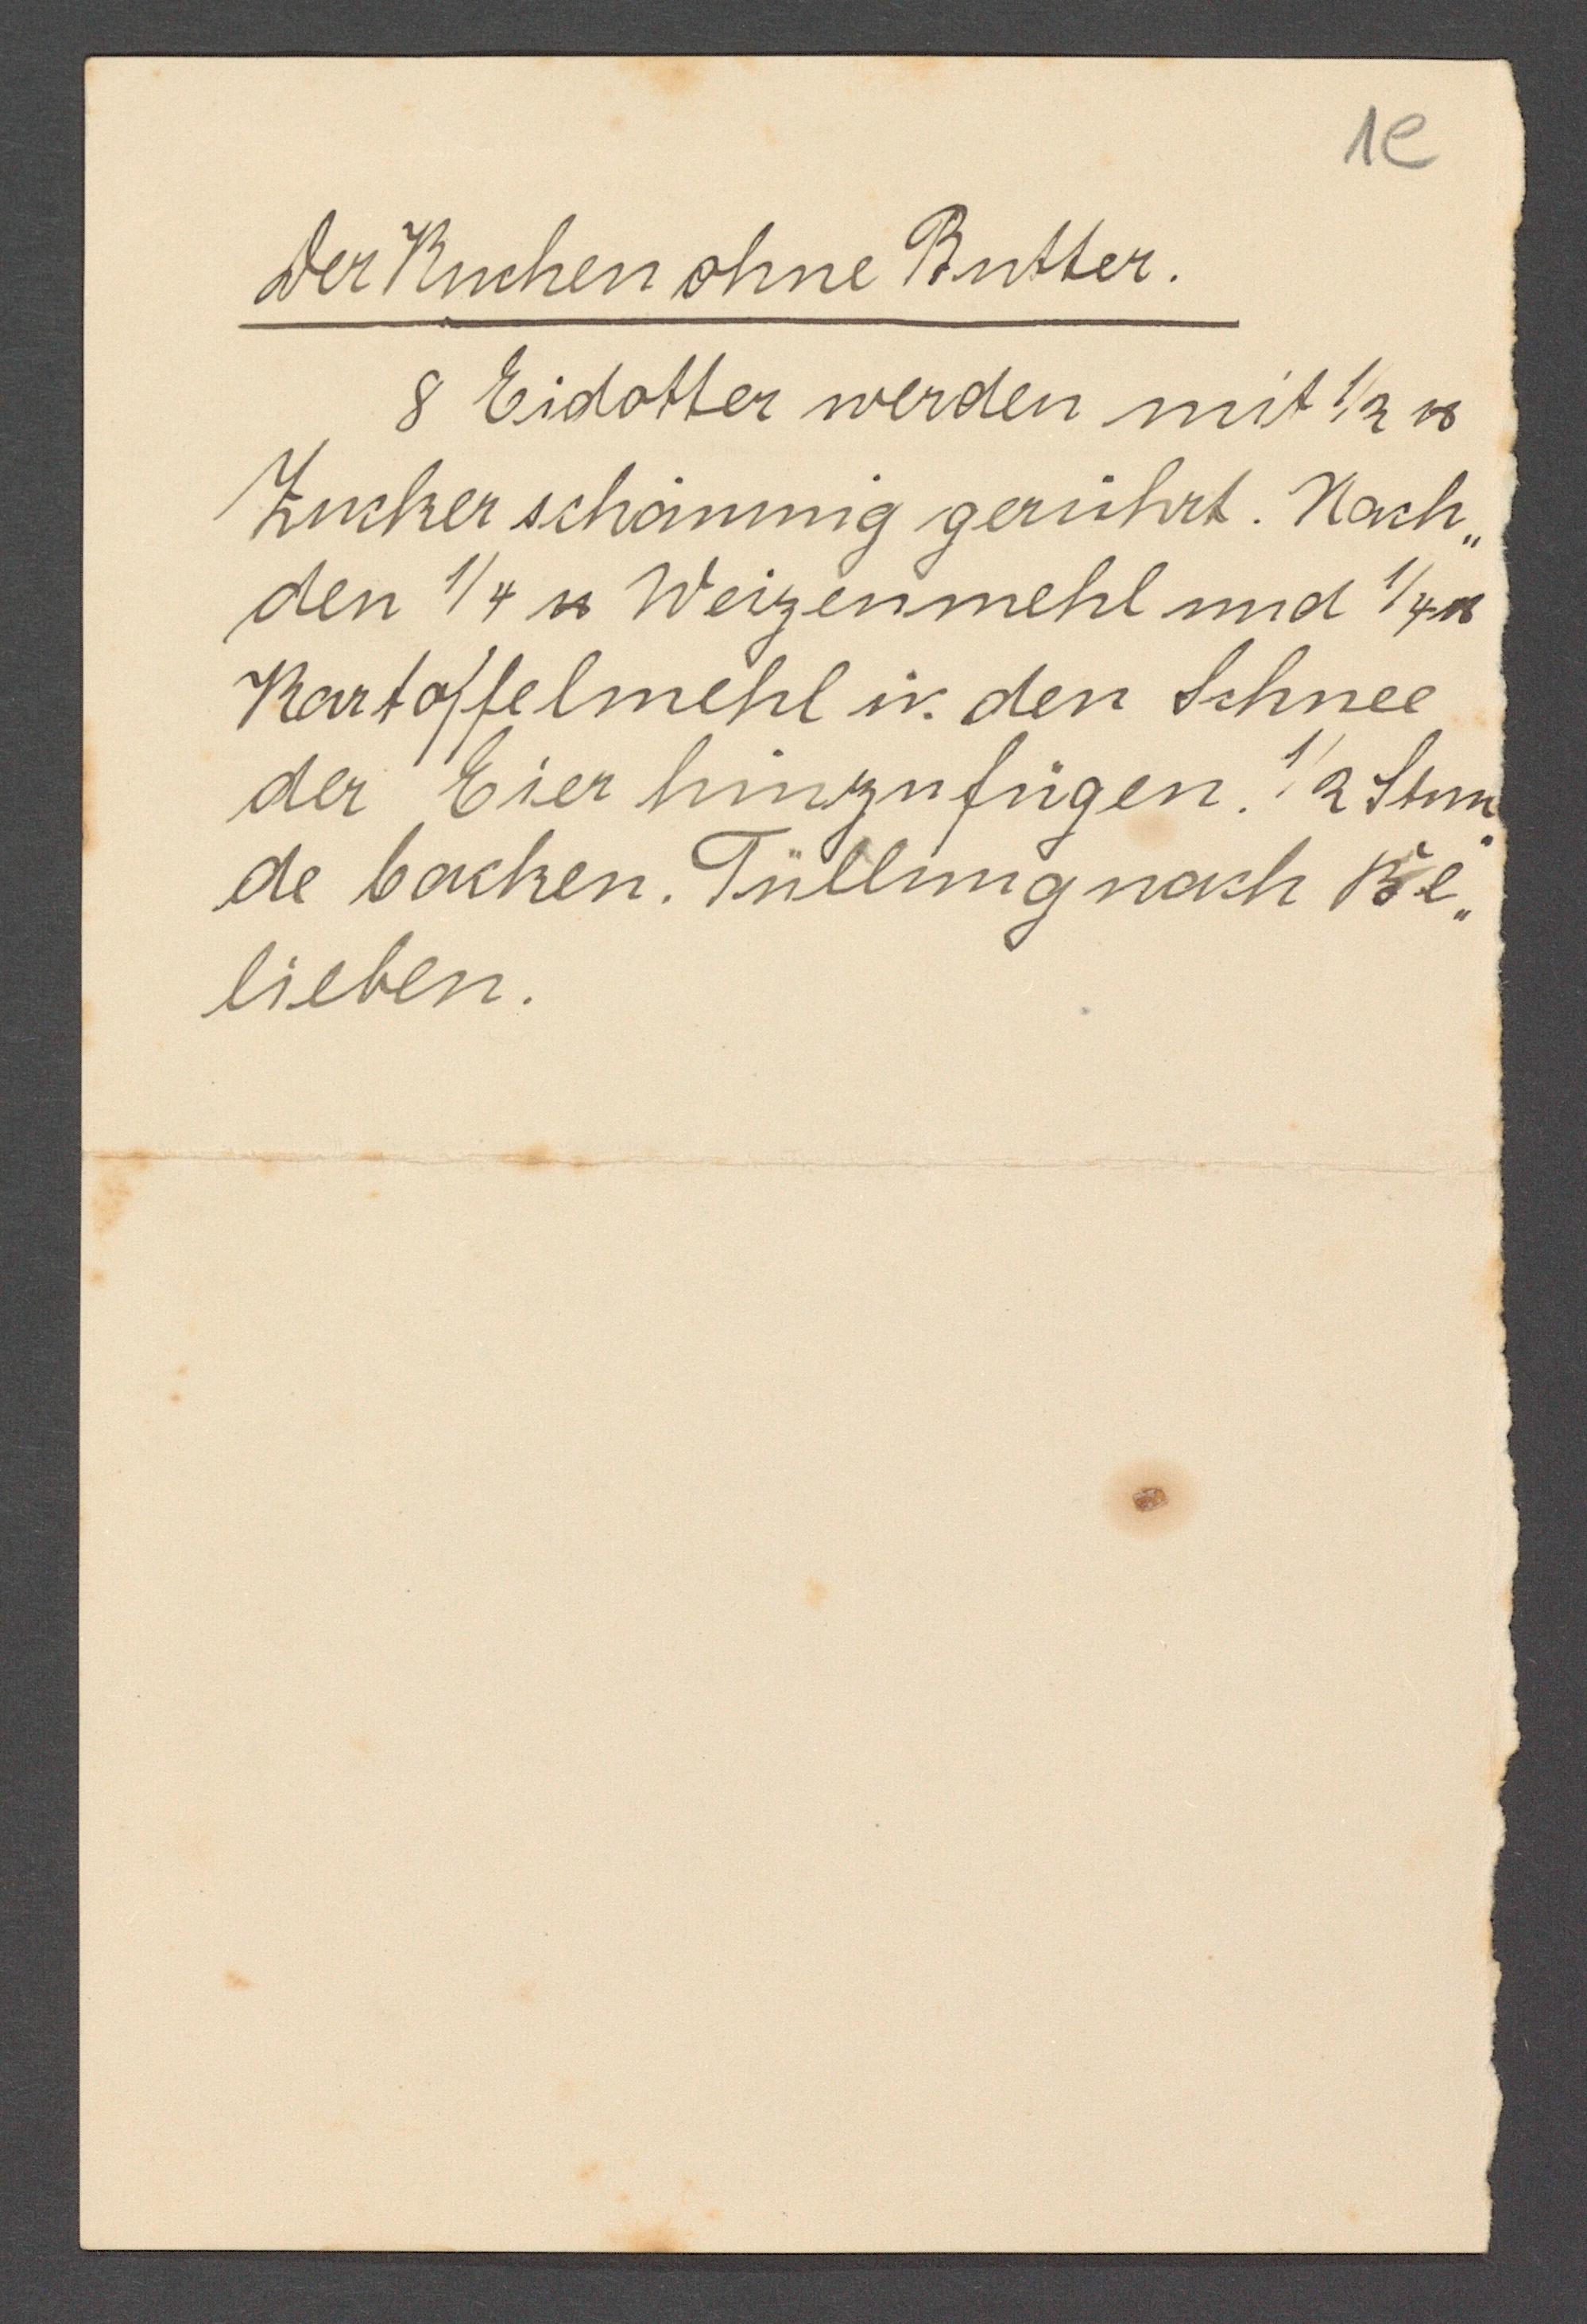 1e
Der Kuchen ohne Butter.
8 Eidotter werden mit 1/2 ℔
Zucker schäumig gerührt. Nach„
den 1/4 ℔ Weizenmehl und 1/4 ℔
Kartoffelmehl u. den Schnee
der Eier hinzufügen. 1/2 Stun„
de backen. Füllung nach Be„
lieben.